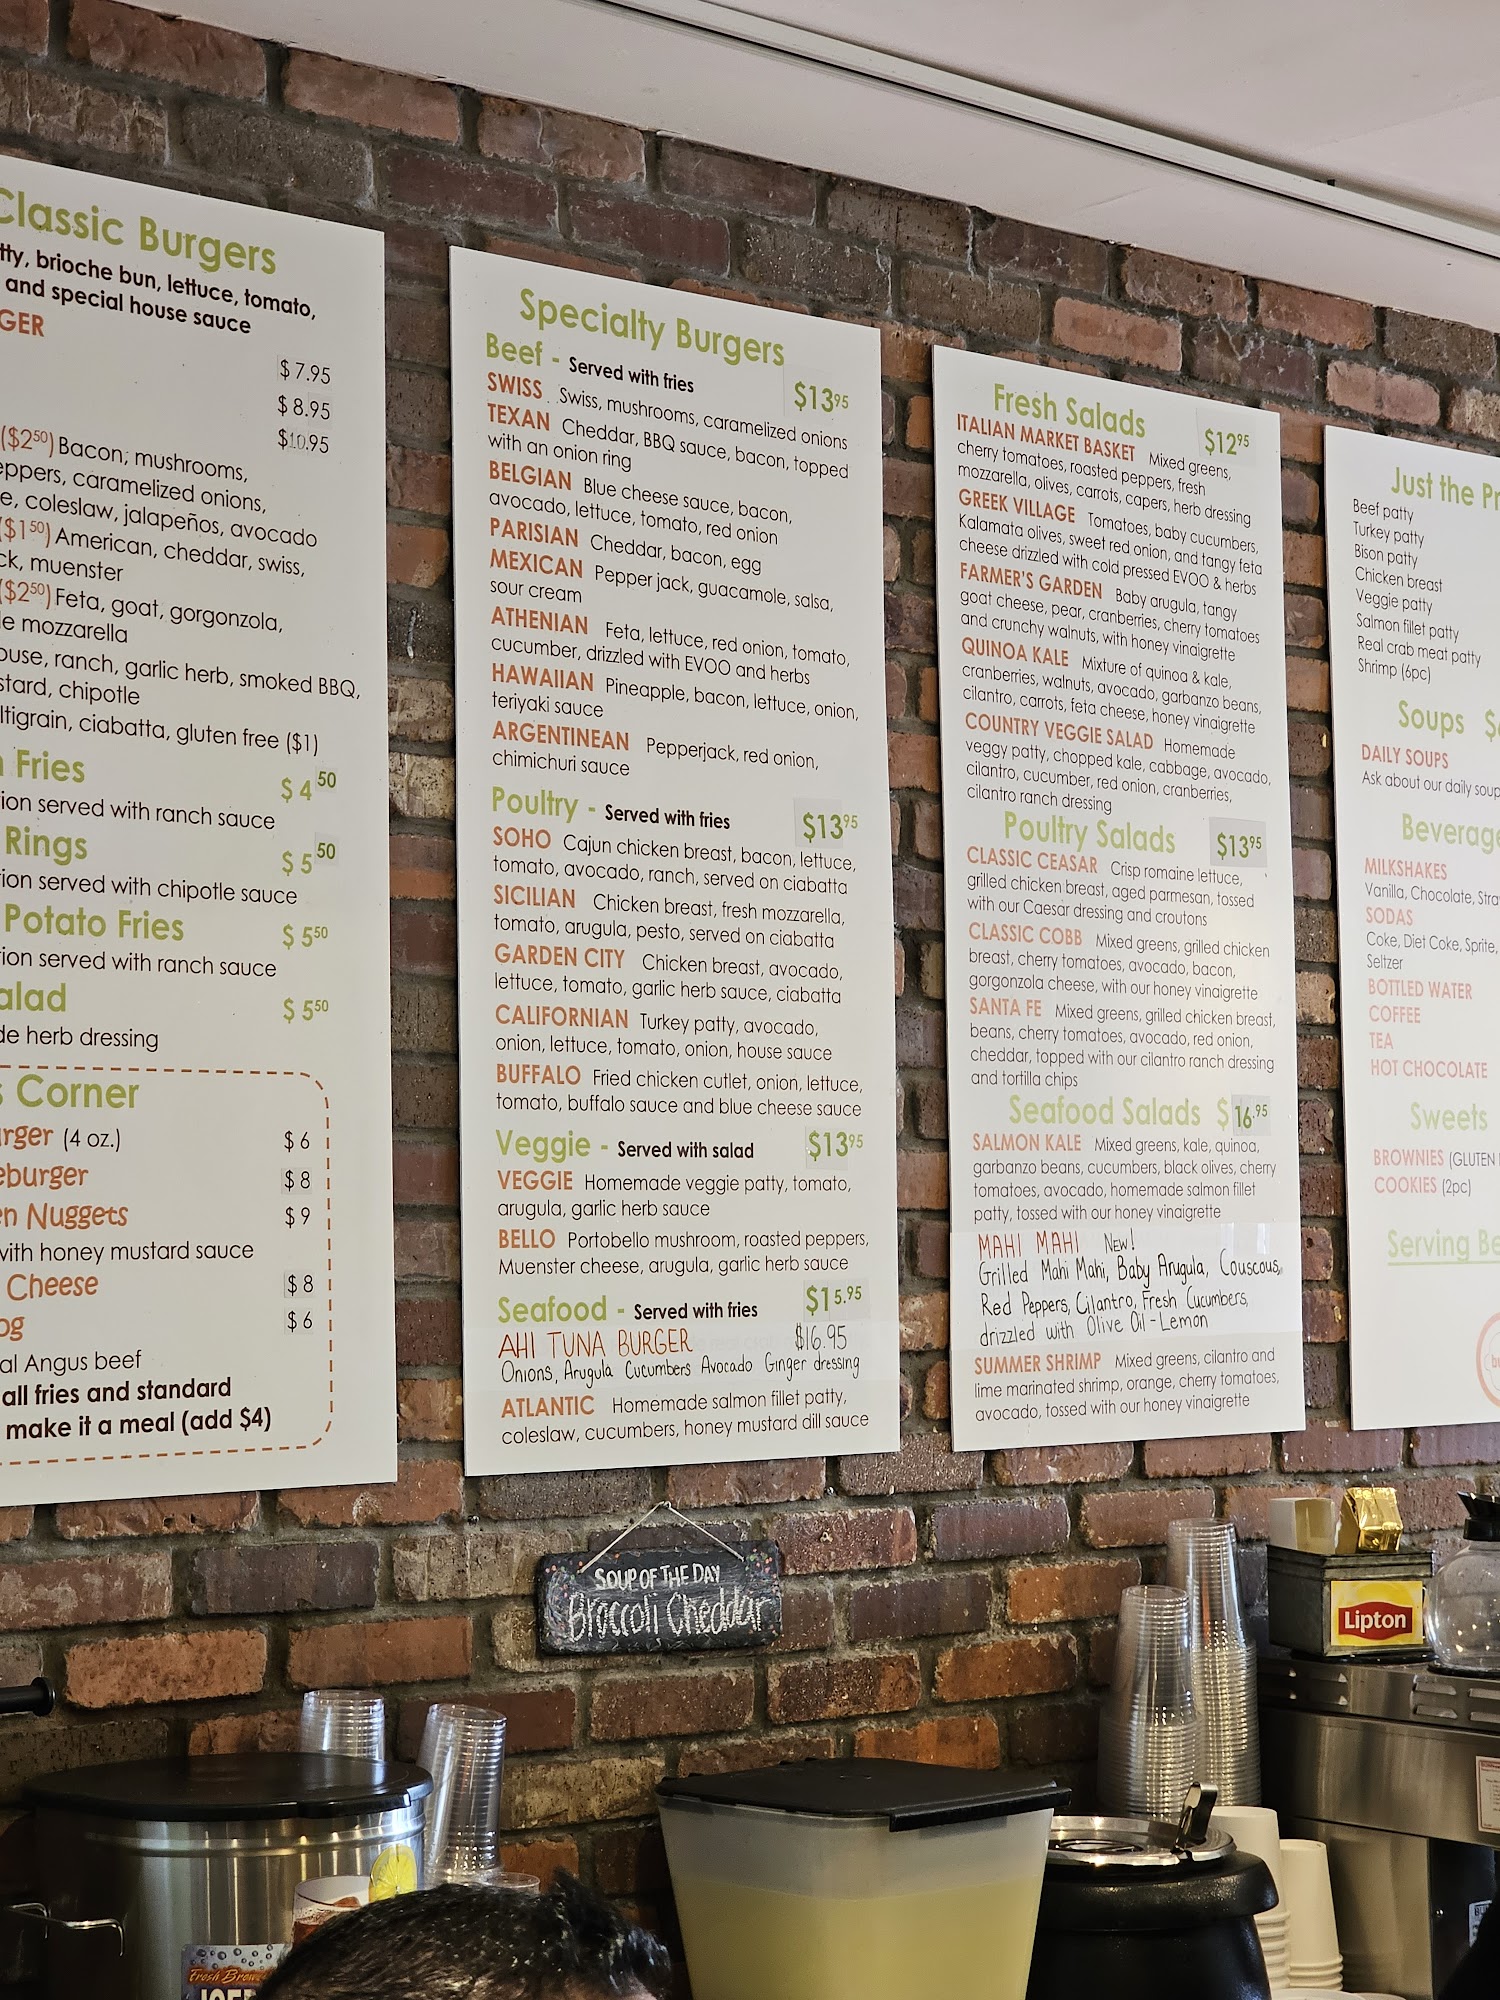 Classic Burgers
brioche bun, lettuce, tomato,
and special house sauce
$ 7.95
$ 8.95
$10.95
($2⁵⁰) Bacon, mushrooms,
caramelized onions,
coleslaw, jalapeños, avocado
($1⁵⁰) American, cheddar, swiss,
muenster
($2⁵⁰) Feta, goat, gorgonzola,
mozzarella
ranch, garlic herb, smoked BBQ,
chipotle
ciabatta, gluten free ($1)
Fries $ 4⁵⁰
served with ranch sauce
Rings $ 5⁵⁰
served with chipotle sauce
Potato Fries $ 5⁵⁰
served with ranch sauce
$ 5⁵⁰
herb dressing
Corner
(4 oz.) $ 6
$ 8
Nuggets $ 9
with honey mustard sauce
Cheese $ 8
$ 6
Angus beef
all fries and standard
make it a meal (add $4)
Specialty Burgers
Beef - Served with fries $13⁹⁵
SWISS Swiss, mushrooms, caramelized onions
TEXAN Cheddar, BBQ sauce, bacon, topped
with an onion ring
BELGIAN Blue cheese sauce, bacon,
avocado, lettuce, tomato, red onion
PARISIAN Cheddar, bacon, egg
MEXICAN Pepper jack, guacamole, salsa,
sour cream
ATHENIAN Feta, lettuce, red onion, tomato,
cucumber, drizzled with EVOO and herbs
HAWAIIAN Pineapple, bacon, lettuce, onion,
teriyaki sauce
ARGENTINEAN Pepperjack, red onion,
chimichuri sauce
Poultry - Served with fries $13⁹⁵
SOHO Cajun chicken breast, bacon, lettuce,
tomato, avocado, ranch, served on ciabatta
SICILIAN Chicken breast, fresh mozzarella,
tomato, arugula, pesto, served on ciabatta
GARDEN CITY Chicken breast, avocado,
lettuce, tomato, garlic herb sauce, ciabatta
CALIFORNIAN Turkey patty, avocado,
onion, lettuce, tomato, onion, house sauce
BUFFALO Fried chicken cutlet, onion, lettuce,
tomato, buffalo sauce and blue cheese sauce
Veggie - Served with salad $13⁹⁵
VEGGIE Homemade veggie patty, tomato,
arugula, garlic herb sauce
BELLO Portobello mushroom, roasted peppers,
Muenster cheese, arugula, garlic herb sauce
Seafood - Served with fries $15.95
AHI TUNA BURGER $16.95
Onions, Arugula Cucumbers Avocado Ginger dressing
ATLANTIC Homemade salmon fillet patty,
coleslaw, cucumbers, honey mustard dill sauce
Fresh Salads $12⁹⁵
ITALIAN MARKET BASKET Mixed greens,
cherry tomatoes, roasted peppers, fresh
mozzarella, olives, carrots, capers, herb dressing
GREEK VILLAGE Tomatoes, baby cucumbers,
Kalamata olives, sweet red onion, and tangy feta
cheese drizzled with cold pressed EVOO & herbs
FARMER'S GARDEN Baby arugula, tangy
goat cheese, pear, cranberries, cherry tomatoes
and crunchy walnuts, with honey vinaigrette
QUINOA KALE Mixture of quinoa & kale,
cranberries, walnuts, avocado, garbanzo beans,
cilantro, carrots, feta cheese, honey vinaigrette
COUNTRY VEGGIE SALAD Homemade
veggy patty, chopped kale, cabbage, avocado,
cilantro, cucumber, red onion, cranberries,
cilantro ranch dressing
Poultry Salads $13⁹⁵
CLASSIC CEASAR Crisp romaine lettuce,
grilled chicken breast, aged parmesan, tossed
with our Caesar dressing and croutons
CLASSIC COBB Mixed greens, grilled chicken
breast, cherry tomatoes, avocado, bacon,
gorgonzola cheese, with our honey vinaigrette
SANTA FE Mixed greens, grilled chicken breast,
beans, cherry tomatoes, avocado, red onion,
cheddar, topped with our cilantro ranch dressing
and tortilla chips
Seafood Salads $16.95
SALMON KALE Mixed greens, kale, quinoa,
garbanzo beans, cucumbers, black olives, cherry
tomatoes, avocado, homemade salmon fillet
patty, tossed with our honey vinaigrette
MAHI MAHI NEW!
Grilled Mahi Mahi, Baby Arugula, Couscous,
Red Peppers, Cilantro, Fresh Cucumbers,
drizzled with Olive Oil - Lemon
SUMMER SHRIMP Mixed greens, cilantro and
lime marinated shrimp, orange, cherry tomatoes,
avocado, tossed with our honey vinaigrette
Just the
Beef patty
Turkey patty
Bison patty
Chicken breast
Veggie patty
Salmon fillet patty
Real crab meat patty
Shrimp (6pc)
Soups
DAILY SOUPS
Ask about our daily soup
Beverage
MILKSHAKES
Vanilla, Chocolate,
SODAS
Coke, Diet Coke, Sprite,
Seltzer
BOTTLED WATER
COFFEE
TEA
HOT CHOCOLATE
Sweets
BROWNIES (GLUTEN
COOKIES (2pc)
Serving
SOUP OF THE DAY
Broccoli Cheddar
Lipton
Fresh Brew